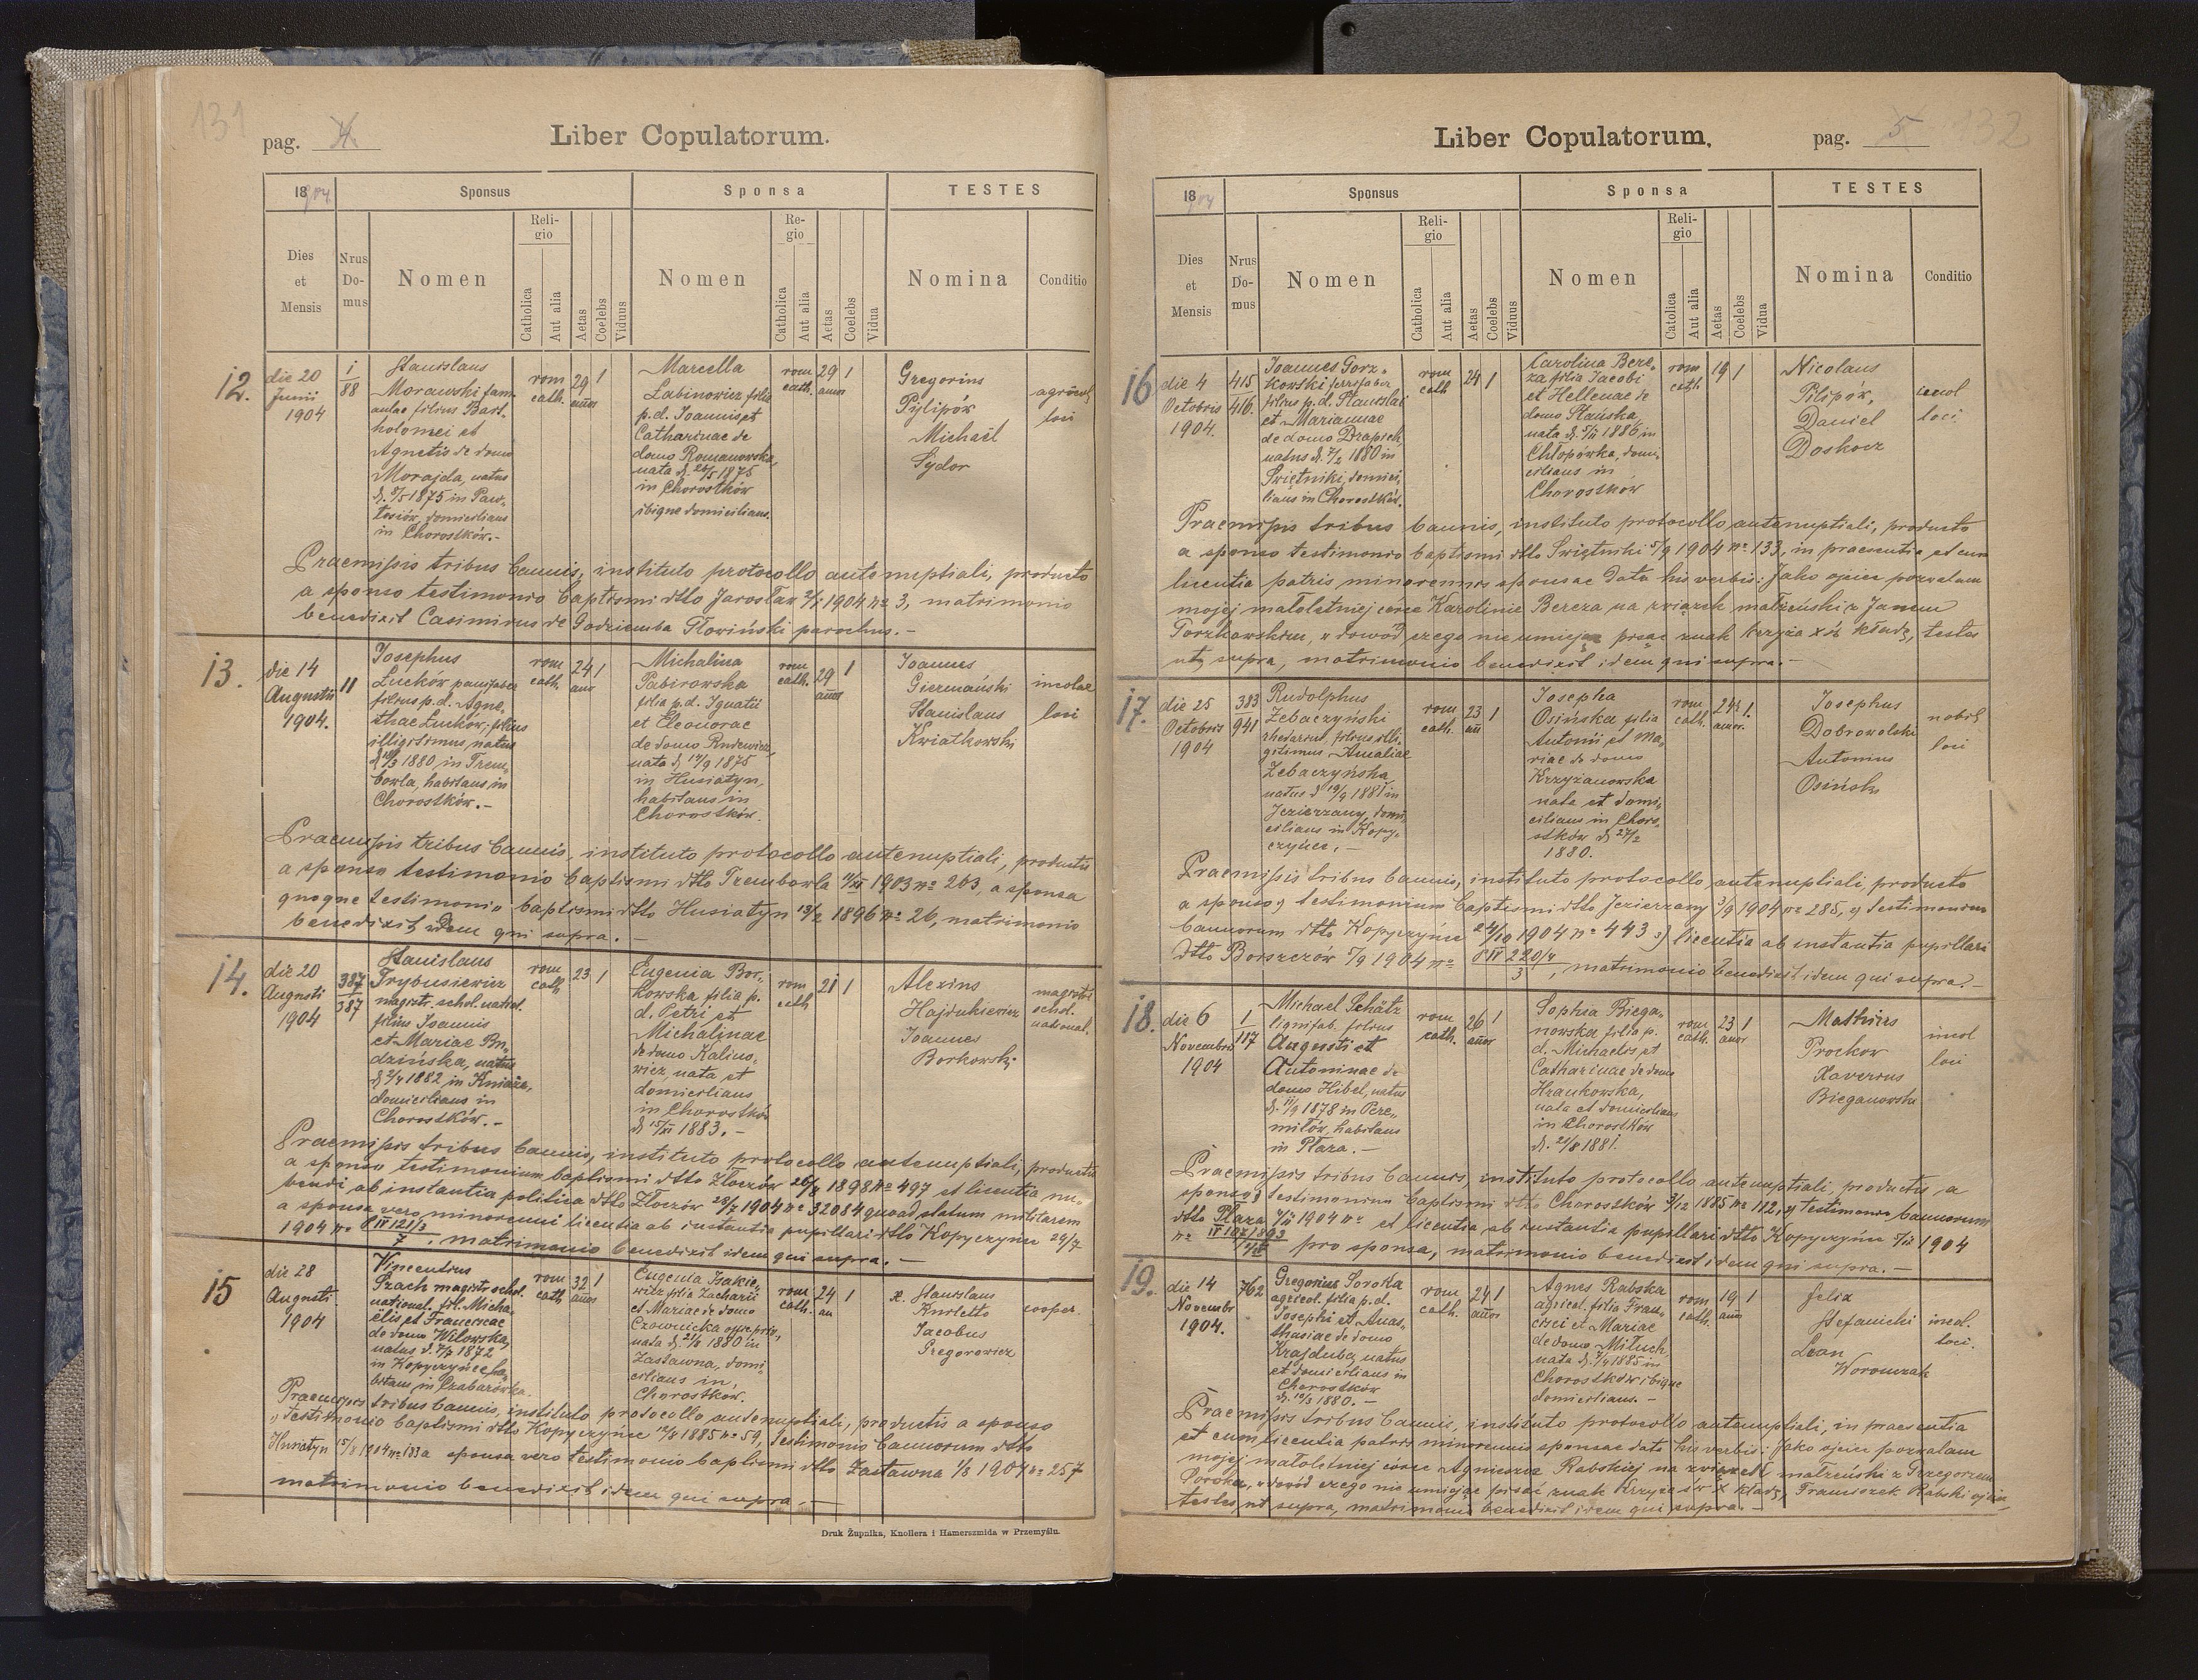 131
pag. 4.
Liber Copulatorum.
1904
Sponsus
Sponsa
TESTES
Dies et Mensis
Nrus Domus
Nomen
Religio
Catholica
Aut alia
Aetas
Coelebs
Viduus
Nomen
Religio
Catholica
Aut alia
Aetas
Coelebs
Vidua
Nomina
Conditio
12.
die 20
Junii
1904
1
88
Stanislaus
Morawski fam
ulae filius Bart
holomei et
Agnetis de domo
Morajda, natus
d. 8/5 1875 in Paw„
łosiów, domicilians
in Chorostków.-
rom
cath.
29
annor
1
Marcella
Łabinowicz filia
p.d. Joannis et
Catharinae de
domo Romanowska,
nata d. 26/5 1875
in Chorostków
ibique domicilians.
rom
cath.
29
annor
1
Gregorius
Pylipów
Michaël
Sydor
agricol
loci
Praemissis tribus bannis, instituto protocollo antenuptiali, producto
a sponso testimonio baptismi dtto Jarosław 2/5 1904 No 3, matrimonio
benedixit Casimirus de Godziemba Głowiński parochus.-
13.
die 14
Augustii
1904.
11
Josephus
Łucków panifaber
filius p.d. Agne„
thae Łucków, filius
illigitimus, natus
1880 in Trem„
bowla, habitans in
Chorostków.-
rom
cath.
24
anno
1
Michalina
Pabirowska
filia p.d. Ignatii
et Eleonorae
de domo Rudewicz,
nata d. 17/9 1875
in Husiatyn,
habitans in
Chorostków.
rom
cath.
29
annor
1
Joannes
Giermański
Stanislaus
Kwiatkowski
incolae
loci
Praemissis tribus bannis, instituto protocollo antenuptiali, productis
a sponso testimonio baptismi dtto Trembowla 11/XII 1903 No 263, a sponsa
quoque testimonio baptismi dtto Husiatyn 13/2 1896 No 26, matrimonio
benedixit idem qui supra.-
14.
die 20
Augusti
1904
387
387
Stanislaus
Trybusiewicz
magistr. schol. national.
filius Joannis
et Mariae Bu„
dzińska, natus
d. 2/4 1882 in Kniaże,
domicilians in
Chorostków.-
rom
cath
23
1
Eugenia Bor„
kowska filia p.
d. Petri et
Michalinae
de domo Kalino„
wicz, nata et
domicilians
in Chorostków
d. 15/XI 1883.-
rom
cath
21
1
Alexius
Hajdukiewicz
Joannes
Borkowski
magistri
schol.
national.
Praemissis tribus bannis, instituto protocollo antenuptiali, productis
a sponso testimonium baptismi dtto Złoczów 26/8 1898 No 497 et licentia nu„
bendi ab instantia politica dtto Złoczów 28/7 1904 No 32084 quoad statum militarem
a sponsa vero minorenni licentia ab instantia pupillari dtto Kopyczyńce 29/7
1904 No P IV 121/3
7, matrimonio benedixit idem qui supra.-
15
die 28
Augusti
1904
Vincentius
Szach magistr. schol.
national. fil. Micha„
ëlis et Franciscae
de domo Witowska,
natus d. 7/7 1872
in Kopyczyńce, ha„
bitans in Czabarówka.
rom
cath
32
annos
1
Eugenia Isakie„
witz filia Zacharii
et Mariae de domo
nata d. 21/8 1880 in
Zastawna, domi„
cilians in,
Chorostków.
rom
cath.
24
an
1
x. Stanislaus
Kurletto
Jacobus
Gregorowicz
cooper.
Praemissis tribus bannis, instituto protocollo antenuptiali, productis a sponso
„ testimonio baptismi dtto Kopyczyńce 12/8 1885 No 59, testimonio bannorum dtto
Husiatyn 15/8 1904 No 183 a sponsa vero testimonio baptismi dtto Zastawna 1/8 1904 No 257
matrimonio benedixit idem qui supra.-
Druk Żupnika, Knollera i Hamerszmida w Przemyślu.
Liber Copulatorum.
pag. 5
132
1904
Sponsus
Sponsa
TESTES
Dies et Mensis
Nrus Domus
Nomen
Religio
Catholica
Aut alia
Aetas
Coelebs
Viduus
Nomen
Religio
Catolica
Aut alia
Aetas
Coelebs
Vidua
Nomina
Conditio
16
die 4
Octobris
1904.
415
416.
Joannes Gorz„
kowski ferrifaber
filius p.d. Stanislai
et Mariannae
de domo Drapich,
natus d. 7/2 1880 in
Świętniki, domici„
lians in Chorostków.
rom
cath
24
1
Carolina Bere„
za filia Jacobi
et Hellenae de
domo Stańska,
nata d. 5/11 1886 in
Chłopówka, domi„
cilians in
Chorostków
rom
cath.
19
1
Nicolaus
Pilipów,
Daniel
Doskocz
incol
loci.
Praemissis tribus bannis, instituto protocollo antenuptiali, producto
a sponso testimonio baptismi dtto Świętniki 5/9 1904 No 133, in praesentia et cum
licentia patris minorennis sponsae data his verbis: Jako ojciec pozwalam
mojej małoletniej córce Karolinie Bereza na związek małżeński z Janem
Gorzkowskim, w dowód czego nie umiejąc pisać znak krzyża x św kładę, testes
ut supra, matrimonio benedixit idem qui supra.-
17.
die 25
Octobris
1904
383
941
Rudolphus
Zebaczyński
rhedarius, filius illi„
gitimus Amaliae
Zebaczyńska,
natus d. 19/4 1881 in
Jezierzany, domi
cilians in Kopy„
czyńce.-
rom
cath.
23
an
1
Josepha
Osińska filia
Antonii et Ma„
riae de domo
Krzyżanowska
nata et domi„
cilians in Choro„
stków d. 27/2
1880.
rom
cath.
24
annor.
1.
Josephus
Dobrowolski
Antonius
Osiński
nobil
loci
Praemissis tribus bannis, instituto protocollo antenuptiali, producto
a sponso 1) testimonium baptismi dtto Jezierzany 3/9 1904 No 285, 2) testimonium
bannorum dtto Kopyczyńce 24/10 1904 No 443 3) licentia ab instantia pupillari
dtto Borszczów 5/9 1904 No P IV 220/4
3, matrimonio benedixit idem qui supra.-
18.
die 6
Novembris
1904
1
117
Michael Schätz
lignifab. filius
Augusti et
Antoninae de
domo Hibel, natus
d. 11/9 1878 in Pere„
miłów, habitans
in Płaza.-
rom
cath.
26
annor
1
Sophia Biega„
nowska filia p.
d. Michaelis et
Catharinae de domo
Hrankowska,
nata et domicilians
in Chorostków
d. 21/8 1881.
rom
cath.
23
annor
1
Mathias
Prockow
Xaverius
Bieganowski
incol
loci
Praemissis tribus bannis, instituto protocollo antenuptiali, productis, a
sponso 1) testimonium baptismi dtto Chorostków 3/12 1885 No 112, 2) testimonio bannorum
dtto Płaza 4/11 1904 No et licentia ab instantia pupillari dtto Kopyczyńce 5/11 1904
pro sponsa, matrimonio benedixit idem qui supra.-
19.
die 14
Novembr
1904.
762
Gregorius Soroka
agricol. filius p.d.
Josephi et Anas„
thasiae de domo
Krajduba, natus
et domicilians in
Chorostków
1880.-
rom
cath.
24
annos
1
Agnes Rabska
agricol. filia Fran„
cisci et Mariae
de domo Miluch
nata d. 7/4 1885 in
Chorostków ibique
domicilians.-
rom
cath.
19
annos
1
Felix
Stefanicki
Leon
Woronczak
incol.
loci.
Praemissis tribus bannis, instituto protocollo antenuptiali, in praesentia
et cum licentia patris minorennis sponsae dato his verbis: Jako ojciec pozwalam
mojej małoletniej córce Agnieszce Rabskiej na związek małżeński z Grzegorzem
Soroka, w dowód czego nie umiejąc pisać znak krzyża św x kładę, Franciszek Rabski ojciec
testes, ut supra, matrimonio benedixit idem qui supra.-